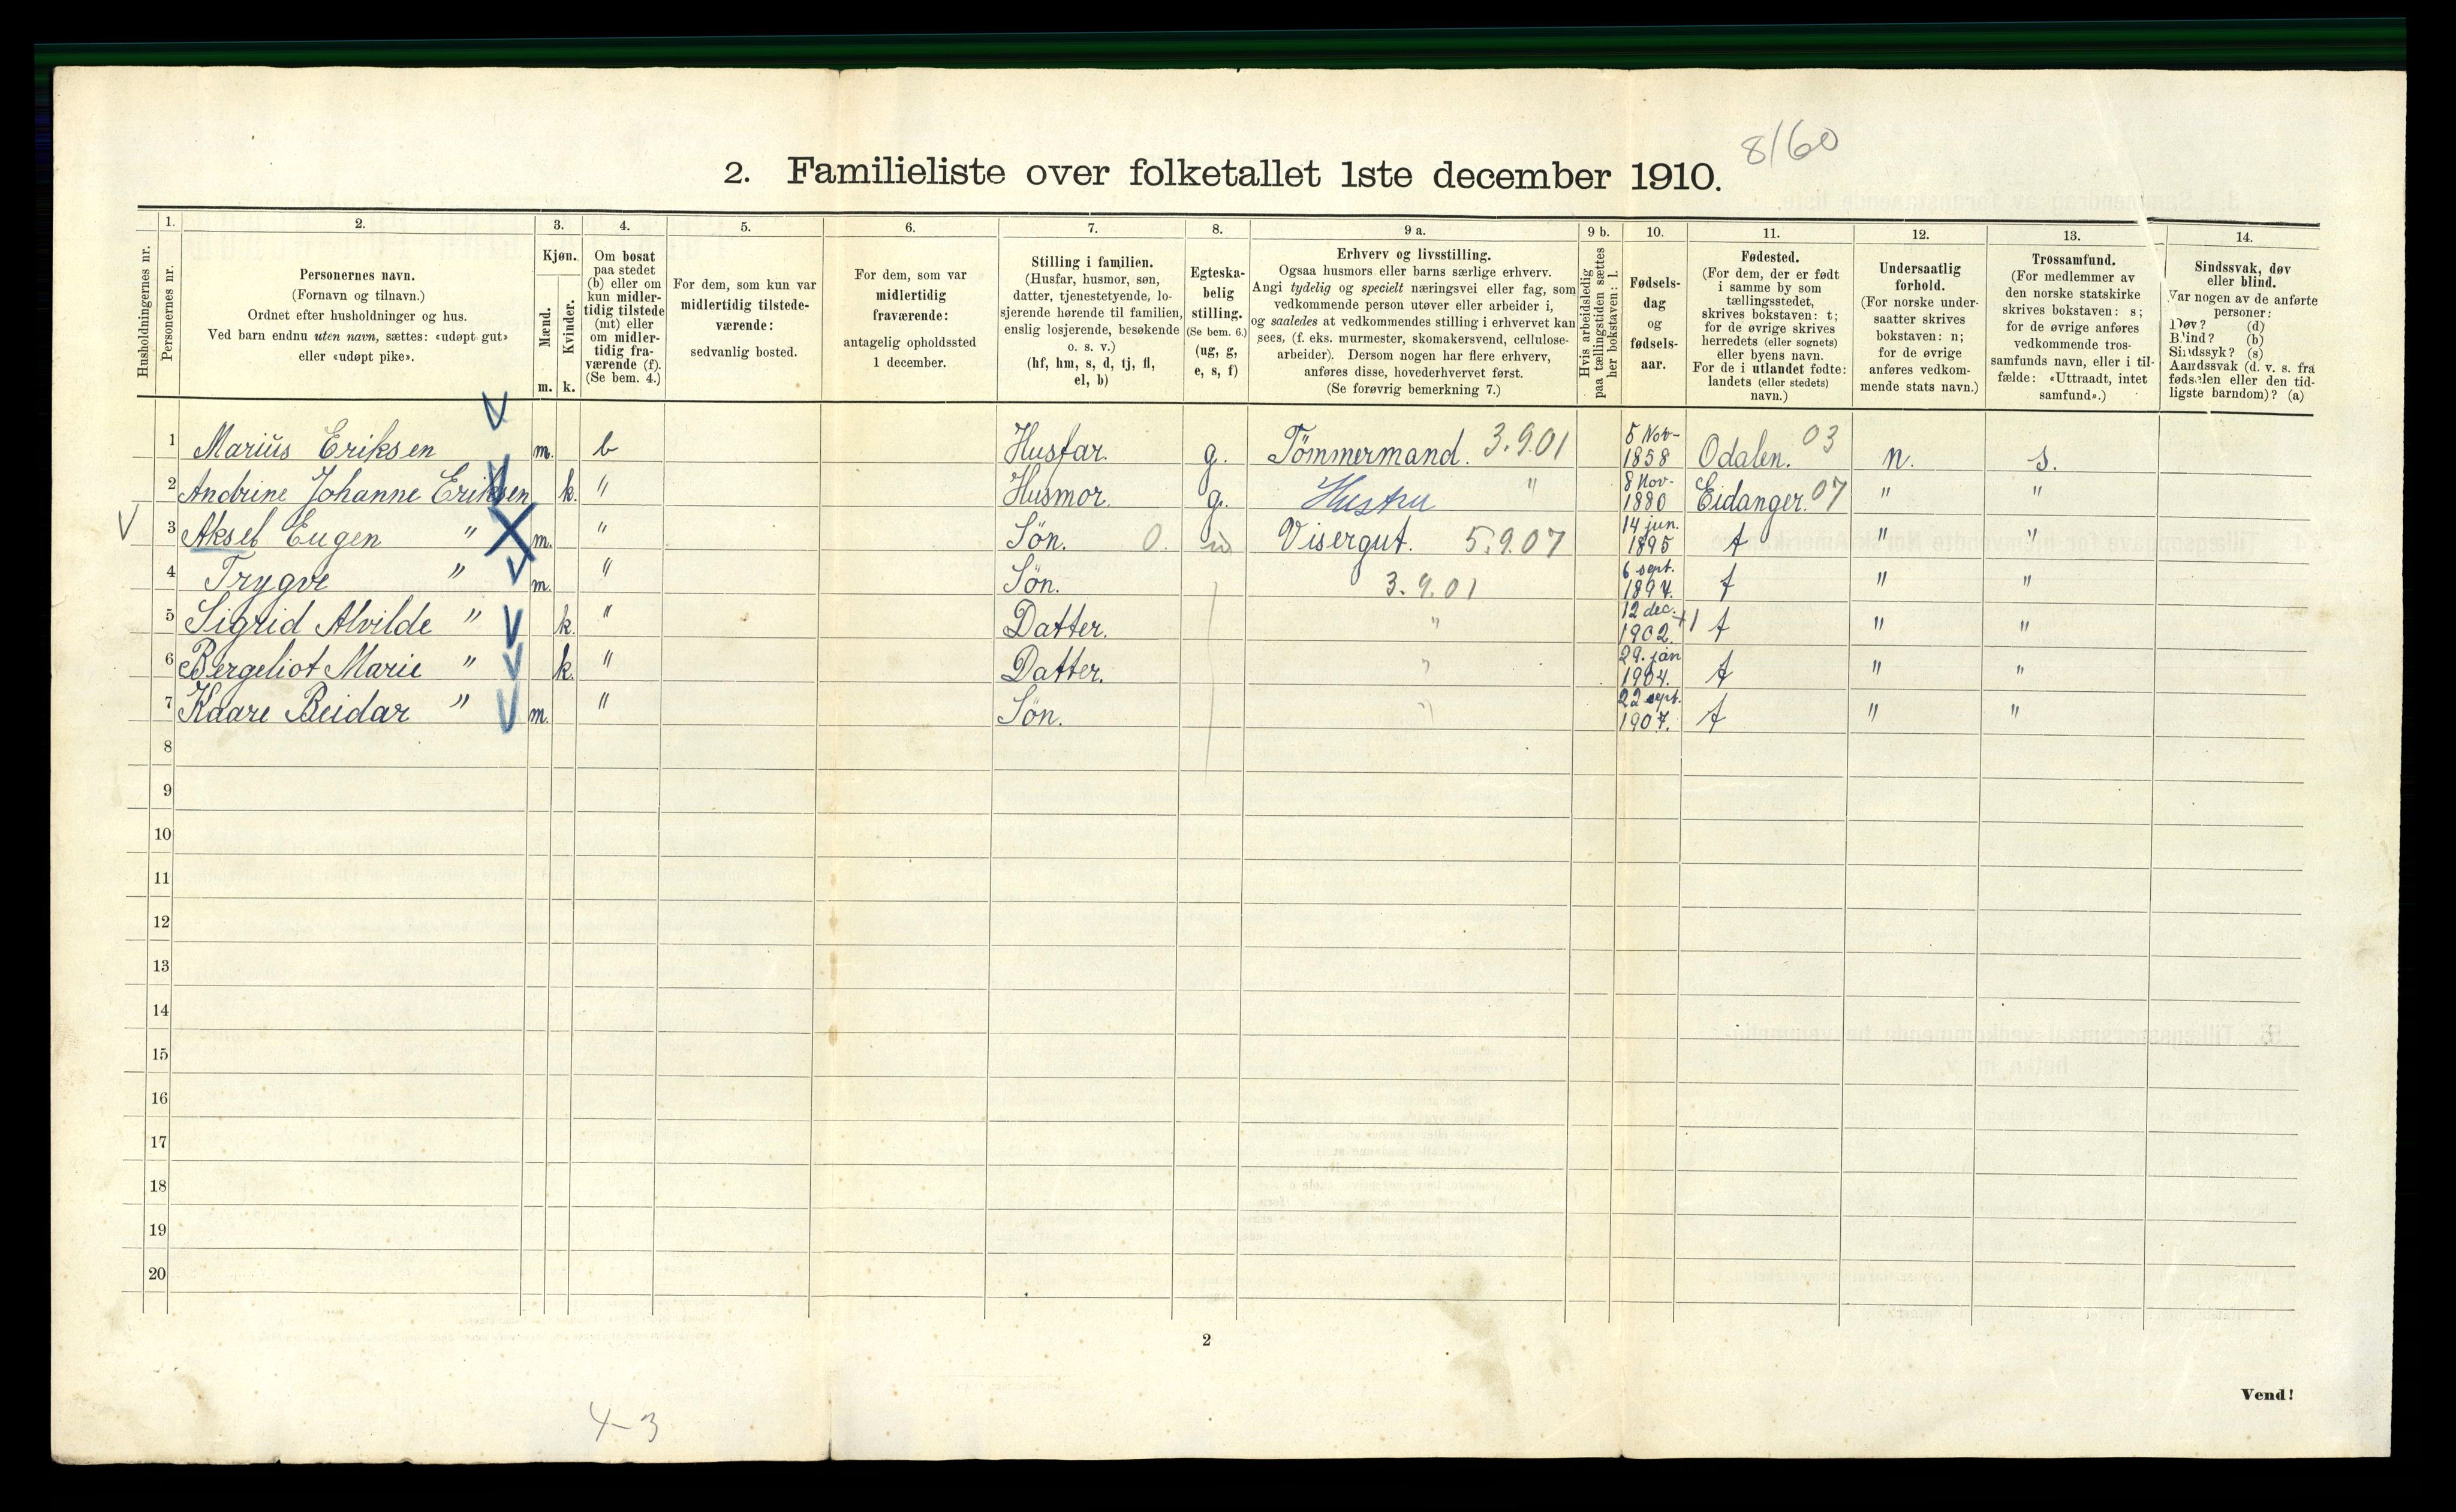 8/60
2. Familieliste over folketallet 1ste december 1910.
Husholdningernes nr.
1.
Personernes nr.
2.
Personernes navn.
(Fornavn og tilnavn.)
Ordnet efter husholdninger og hus.
Ved barn endnu uten navn, sættes: «udøpt gut»
eller «udøpt pike».
3.
Kjøn.
Mænd.
Kvinder.
m. k.
4.
Om bosat
paa stedet
(b) eller om
kun midler-
tidig tilstede
(mt) eller
om midler-
tidig fra-
værende (f).
(Se bem. 4.)
5.
For dem, som kun var
midlertidig tilstede-
værende:
sedvanlig bosted.
6.
For dem, som var
midlertidig
fraværende:
antagelig opholdssted
1 december.
7.
Stilling i familien.
(Husfar, husmor, søn,
datter, tjenestetyende, lo-
sjerende hørende til familien,
enslig losjerende, besøkende
o. s. v.)
(hf, hm, s, d, tj, fl,
el, b)
8.
Egteska-
belig
stilling.
(Se bem. 6.)
(ug, g,
e, s, f)
9 a.
Erhverv og livsstilling.
Ogsaa husmors eller barns særlige erhverv.
Angi tydelig og specielt næringsvei eller fag, som
vedkommende person utøver eller arbeider i,
og saaledes at vedkommendes stilling i erhvervet kan
sees, (f. eks. murmester, skomakersvend, cellulose-
arbeider). Dersom nogen har flere erhverv,
anføres disse, hovederhvervet først.
(Se forøvrig bemerkning 7.)
9 b.
Hvis arbeidsledig
paa tællingstiden sættes
her bokstaven: l.
10.
Fødsels-
dag
og
fødsels-
aar.
11.
Fødested.
(For dem, der er født
i samme by som
tællingsstedet,
skrives bokstaven: t;
for de øvrige skrives
herredets (eller sognets)
eller byens navn.
For de i utlandet fødte:
landets (eller stedets)
navn.)
12.
Undersaatlig
forhold.
(For norske under-
saatter skrives
bokstaven: n;
for de øvrige
anføres vedkom-
mende stats navn.)
13.
Trossamfund.
(For medlemmer av
den norske statskirke
skrives bokstaven: s;
for de øvrige anføres
vedkommende tros-
samfunds navn, eller i til-
fælde: «Uttraadt, intet
samfund».)
14.
Sindssvak, døv
eller blind.
Var nogen av de anførte
personer:
Døv? (d)
Blind? (b)
Sindssyk? (s)
Aandssvak (d. v. s. fra
fødselen eller den tid-
ligste barndom)? (a)
1 Marius Eriksen m. b Husfar. g. Tömmermand. 3.9.01 5 Nov- 1858 Odalen. 03 n. s.
2 Andrine Johanne Eriksen k. " Husmor. g. Hustru " 8 Nov- 1880 Eidanger. 07 " "
3 Aksel Eugen " m. " Sön. 0. Visergut. 5.9.07 14 jun. 1895 t " "
4 Trygve " m. " Sön. 3.9.01 6 sept. 1897. t " "
5 Sigrid Alvilde " k. " Datter. " 12 dec. 1902. +1 t " "
6 Bergeliot Marie " k. " Datter. " 29. jan 1904. t " "
7 Kaare Beidar " m. " Sön. " 22 sept. 1907. t " "
8
9
10
11
12
13
14
15
16
17
18
19
20
2
Vend!
4-3